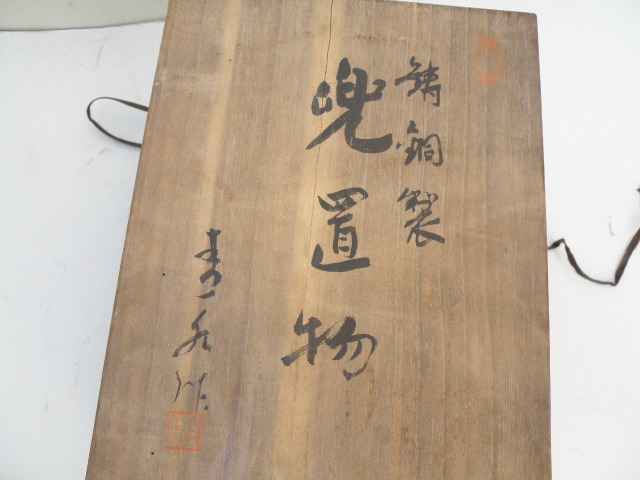 鋳銅製
兜置物
作